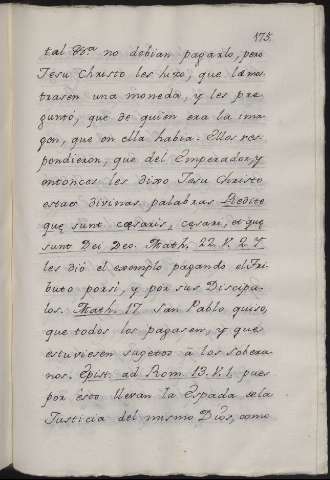 175.
tal &ra. no debian pagarlo, pero
Jesu Christo les hizo, que lamos-
trasen una moneda, y les pre
guntó, que de quien era la ima
gen, que en ella habia. Ellos res-
pondieron, que del Emperador, y
entonces les dixo Jesu Christo
estas divinas palabras Reddite
quę sunt cæsaris, cæsari, et quę
sunt Dei Deo. Math. 22. V. 2.
les dió el exemplo pagando el Tri-
buto por si, y por sus Discipu-
los. Math. 17. San Pablo quiso,
que todos los pagasen, y que
estuviesen sugetos à los Sobera-
nos. Epist. ad Rom. 13. V. 1. pues
por esto llevan la Espada dela
Justicia del mismo Dios, como